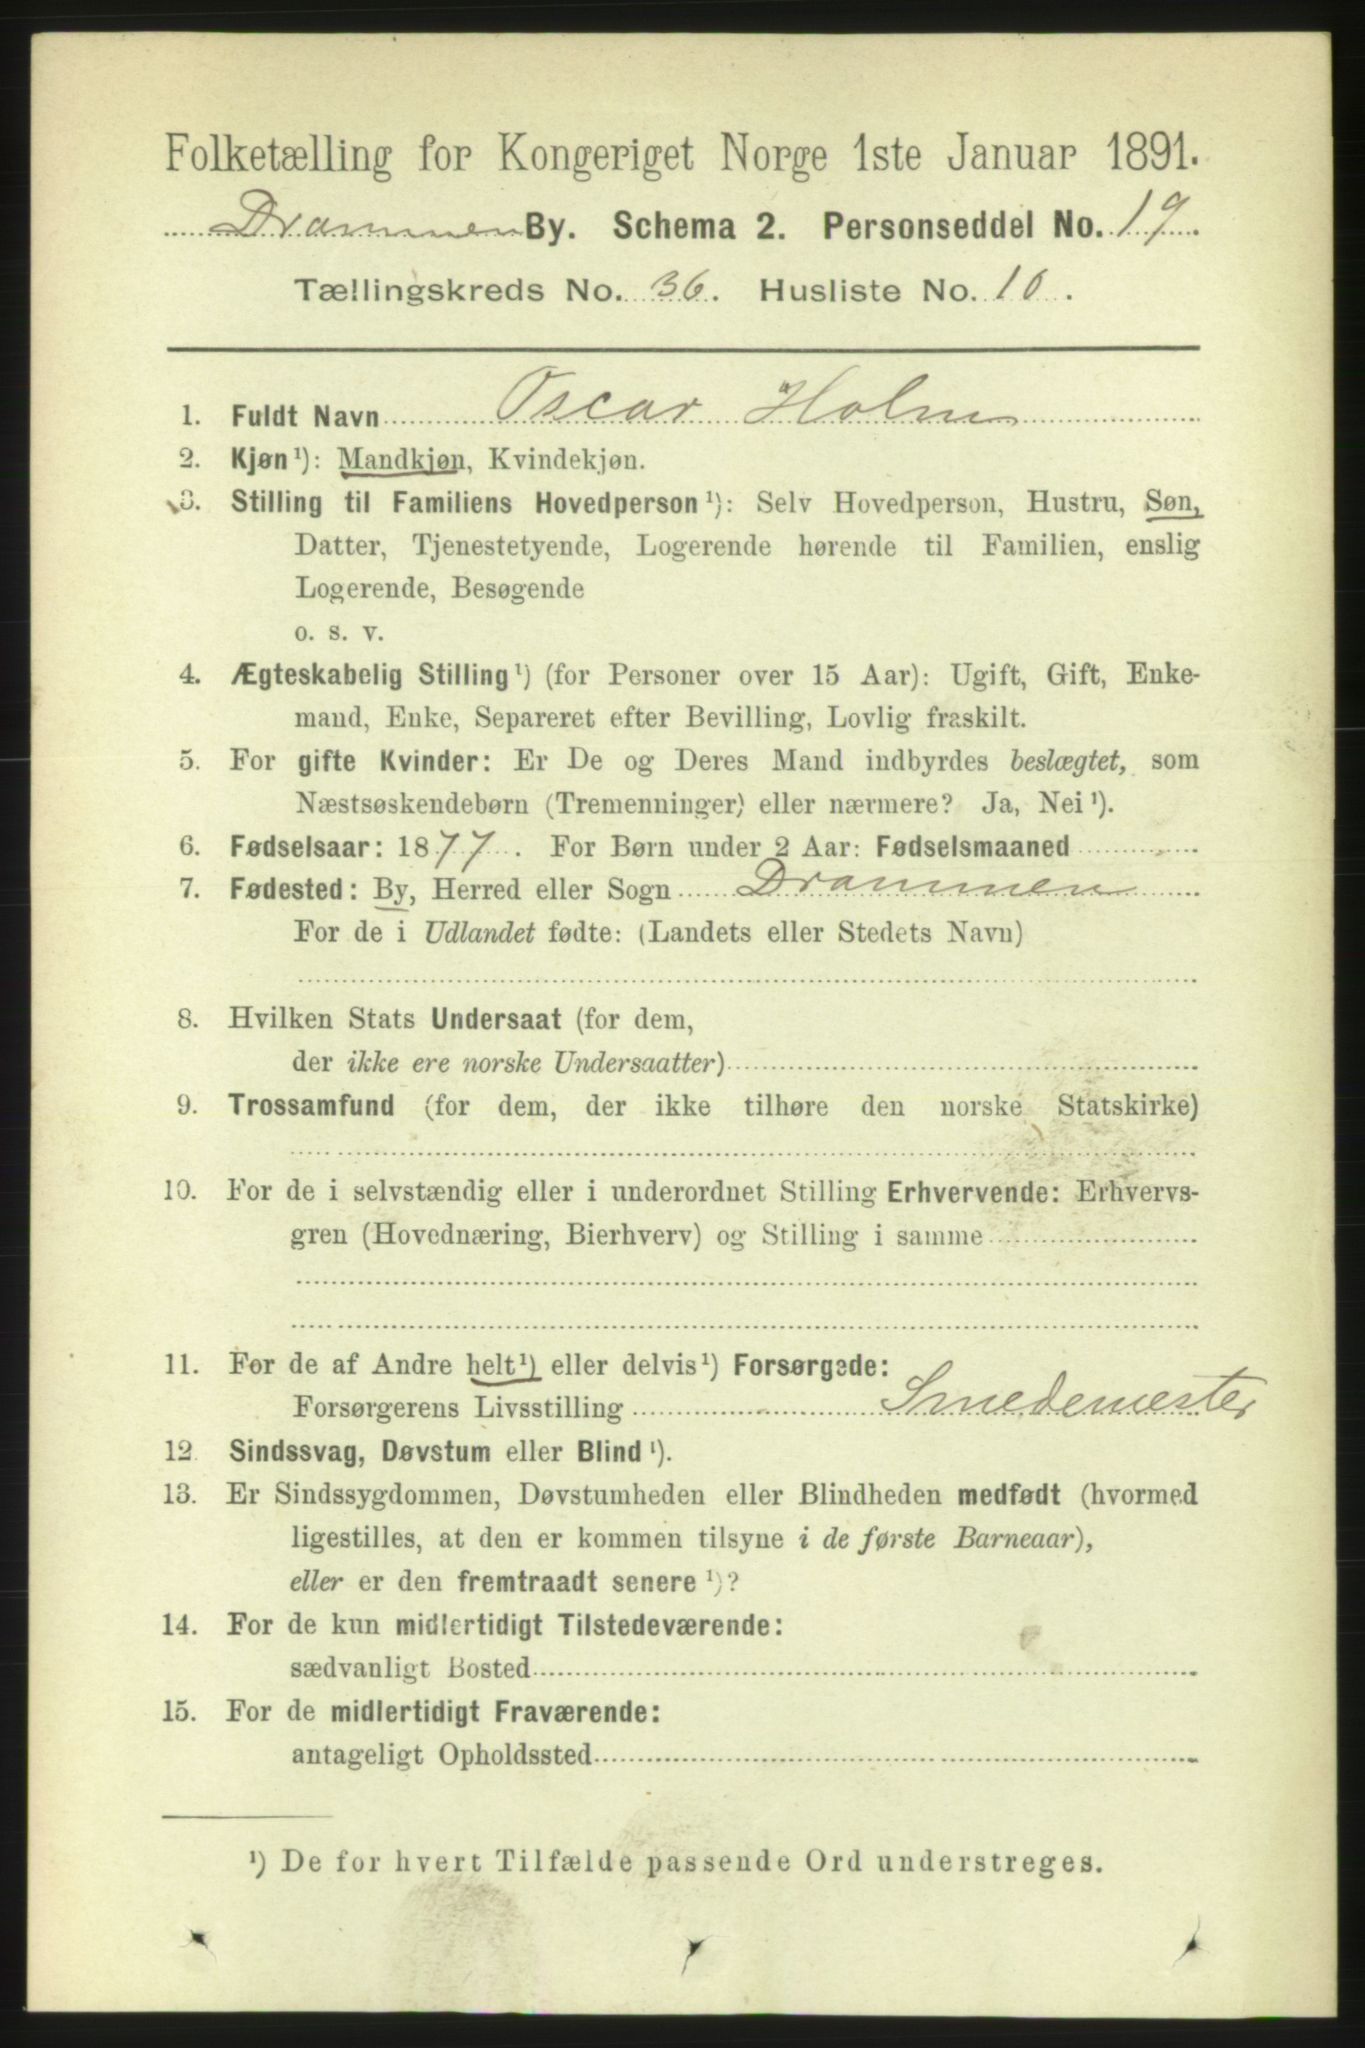 Folketælling for Kongeriget Norge 1ste Januar 1891.
Drammen By. Schema 2. Personseddel No. 19.
Tællingskreds No. 36. Husliste No. 10.
1. Fuldt Navn Oscar Holm
2. Kjøn¹): Mandkjøn, Kvindekjøn.
3. Stilling til Familiens Hovedperson¹): Selv Hovedperson, Hustru, Søn,
Datter, Tjenestetyende, Logerende hørende til Familien, enslig
Logerende, Besøgende
o. s. v.
4. Ægteskabelig Stilling¹) (for Personer over 15 Aar): Ugift, Gift, Enke-
mand, Enke, Separeret efter Bevilling, Lovlig fraskilt.
5. For gifte Kvinder: Er De og Deres Mand indbyrdes beslægtet, som
Næstsøskendebørn (Tremenninger) eller nærmere? Ja, Nei¹).
6. Fødselsaar: 1877. For Børn under 2 Aar: Fødselsmaaned
7. Fødested: By, Herred eller Sogn Drammen
For de i Udlandet fødte: (Landets eller Stedets Navn)
8. Hvilken Stats Undersaat (for dem,
der ikke ere norske Undersaatter)
9. Trossamfund (for dem, der ikke tilhøre den norske Statskirke)
10. For de i selvstændig eller i underordnet Stilling Erhvervende: Erhvervs-
gren (Hovednæring, Bierhverv) og Stilling i samme
11. For de af Andre helt¹) eller delvis¹) Forsørgede:
Forsørgerens Livsstilling Smedemester
12. Sindssvag, Døvstum eller Blind¹).
13. Er Sindssygdommen, Døvstumheden eller Blindheden medfødt (hvormed
ligestilles, at den er kommen tilsyne i de første Barneaar),
eller er den fremtraadt senere¹)?
14. For de kun midlertidigt Tilstedeværende:
sædvanligt Bosted
15. For de midlertidigt Fraværende:
antageligt Opholdssted
¹) De for hvert Tilfælde passende Ord understreges.